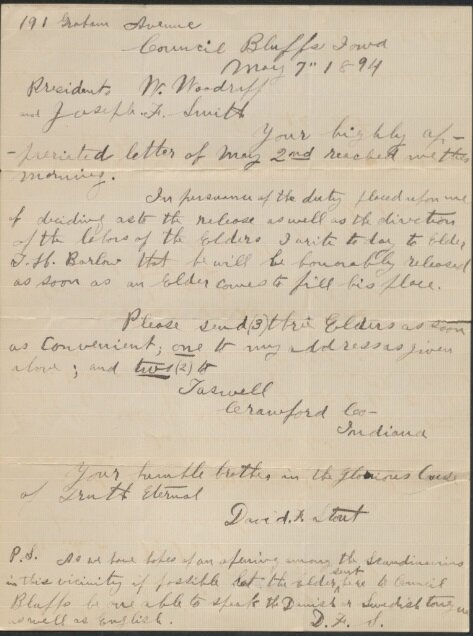 191 Graham Avenue
Council Bluffs Iowa
May 7" 1894
Presidents W. Woodruff
and Joseph F. Smith
Your highly ap-
-preciated letter of May 2nd reached me this
morning.
In persuance of the duty placed upon me
of deciding as to the release as well as the direction
of the labors of the Elders I write to day to Elder
J. H. Barlow that he will be honorably released
as soon as an Elder comes to fill his place.
Please send (3) three Elders as soon
as convenient; one to my address as given
above; and two (2) to
Taswell
Crawford Co-
Indiana
Your humble brother in the Glorious Cause
of Truth Eternal
David F. Stout
P.S. As we have hopes of an opening among the Scandinavians
in this vicinity if possible let the Elder sent here to Council
Bluffs be one able to speak the Danish or Swedish tongue
as well as English. D. F. S.